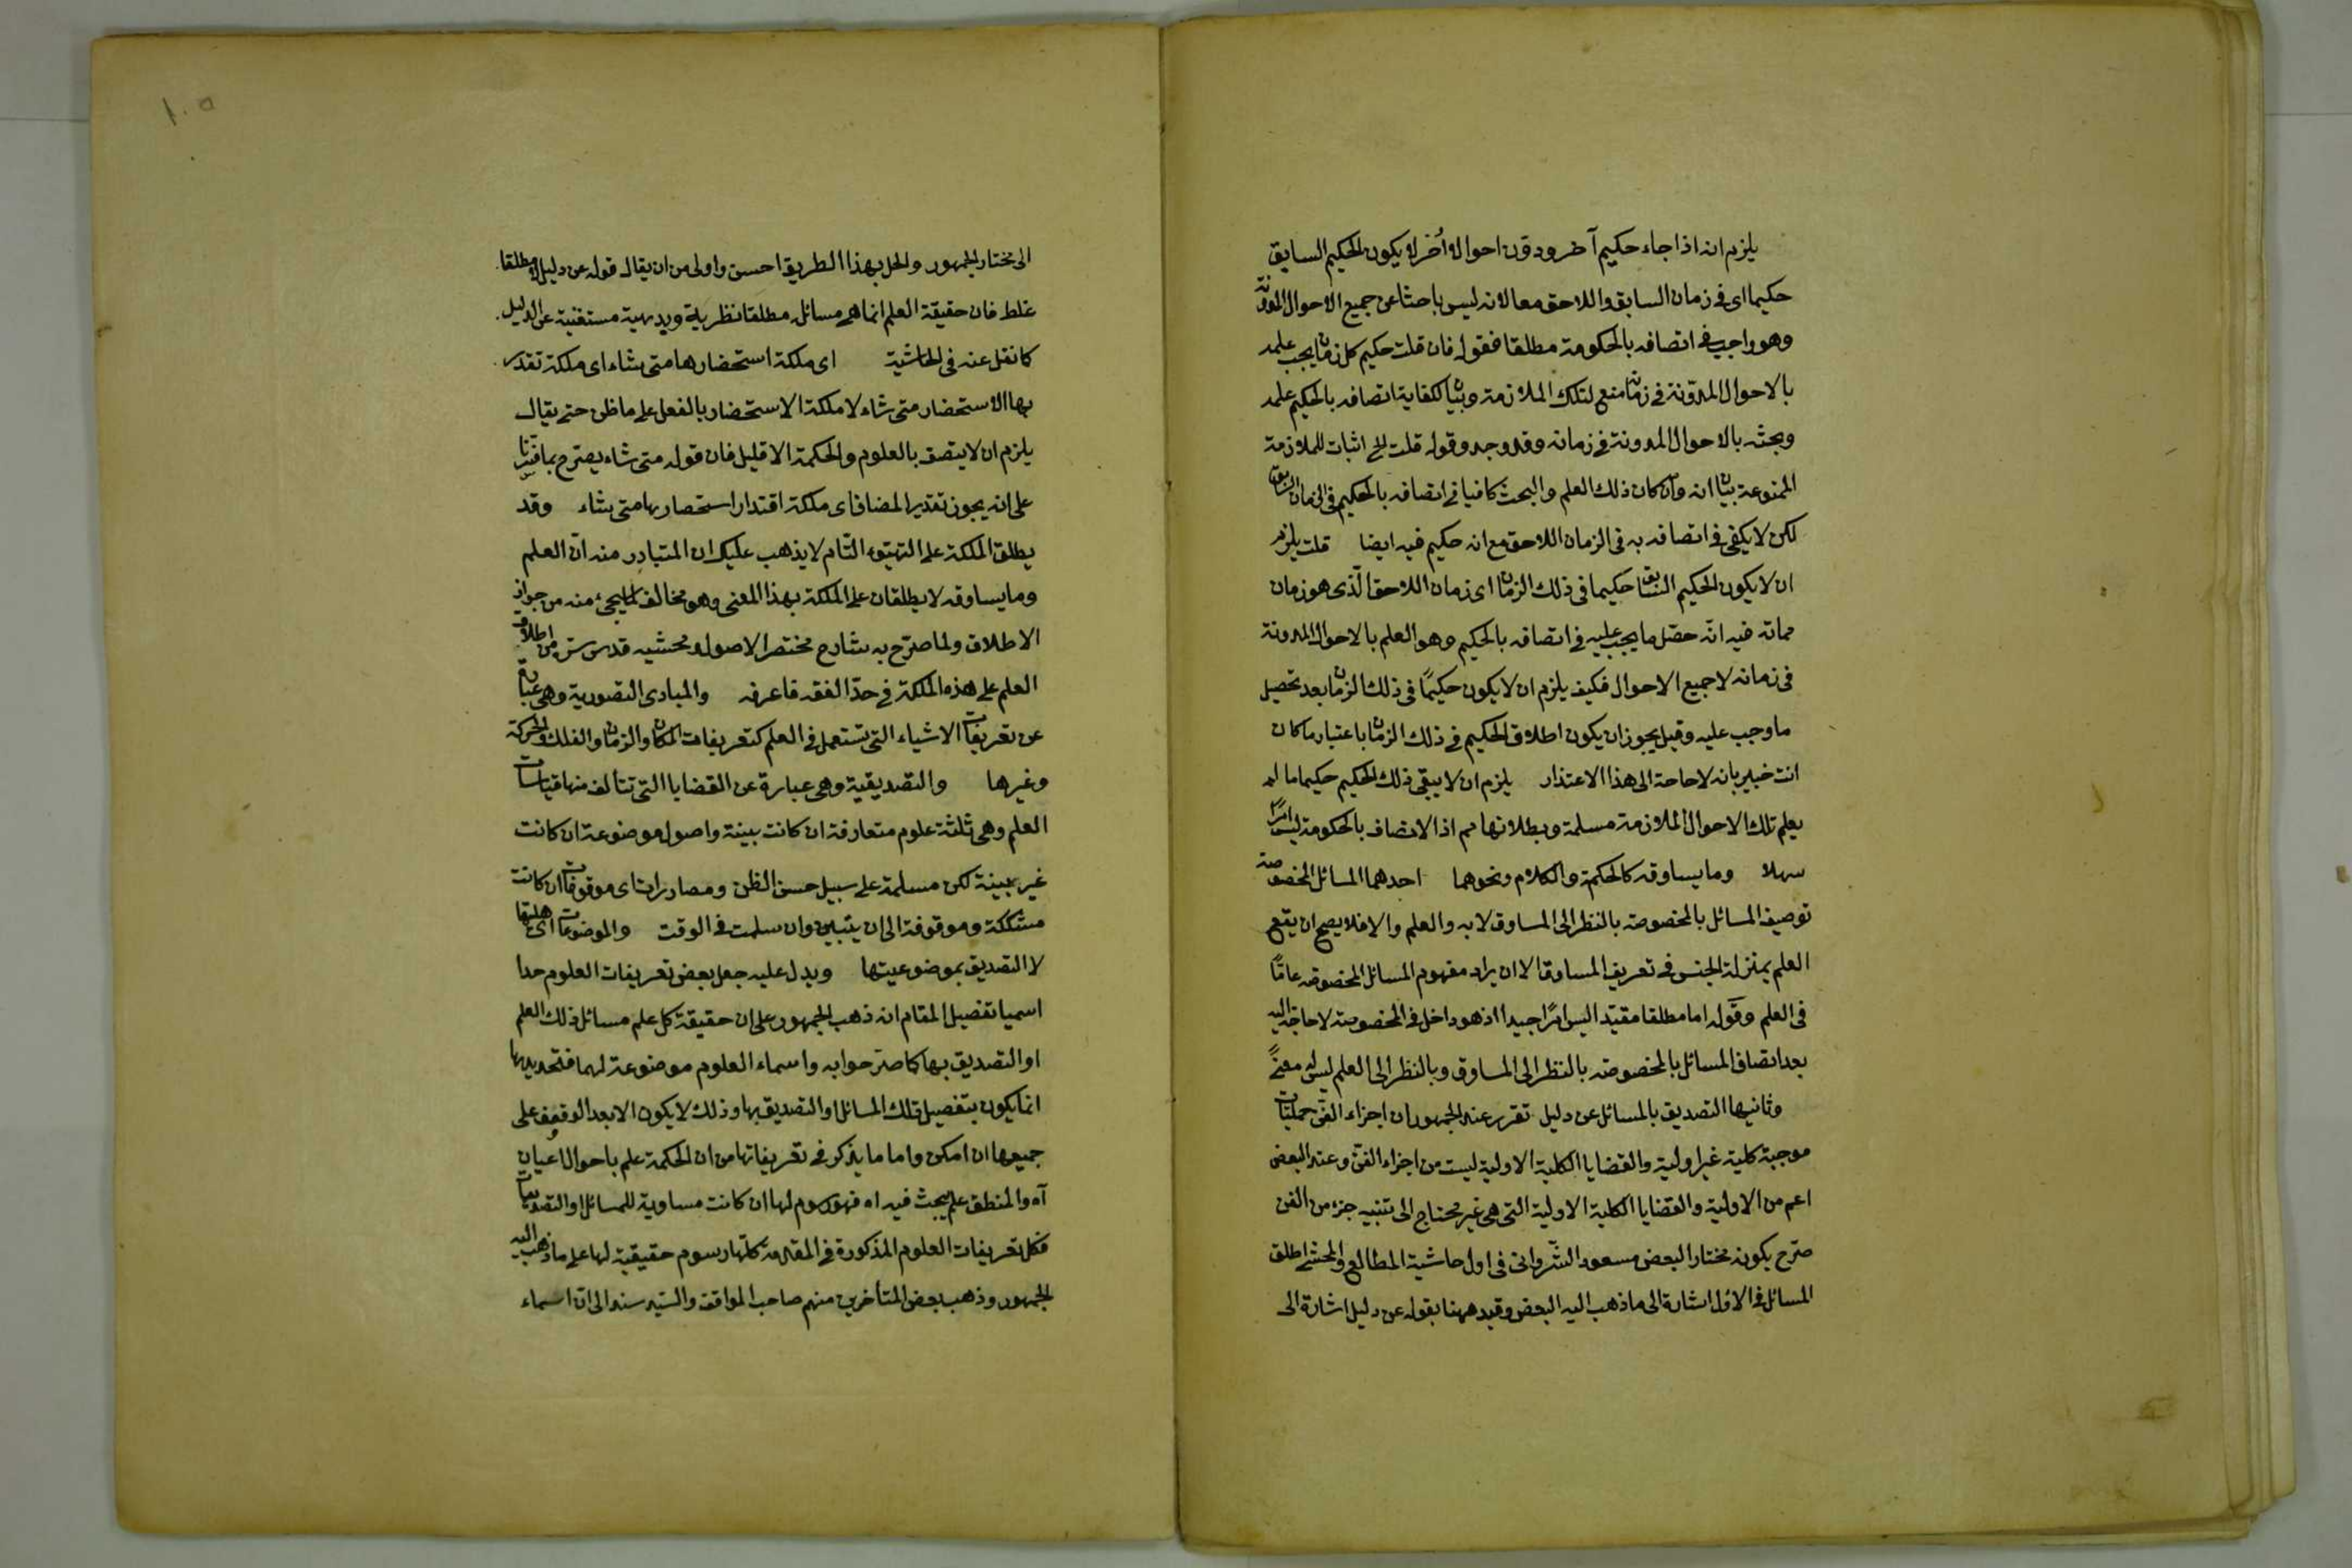 يلزم انه اذا جاء حكيم آخر ودون احوالا أخر لا يكون الحكيم السابق
حكيما اى فى زمان السابق واللاحق معا لانه ليس باحثا عن جميع الاحوال المدونة
وهو واجب فى اتصافه بالحكومة مطلقا فقوله فان قلت حكيم كل زمان يجب علمه
بالاحوال المدونة فى زمانه منع لتلك الملازمة وبيان لكفاية اتصافه بالحكيم علمه
وبحثه بالاحوال المدونة فى زمانه وقد وجد وقوله قلت الخ اثبات للملازمة
الممنوعة ببيان انه وان كان ذلك العلم والبحث كافيا فى اتصافه بالحكيم فى الزمان السابق
لكن لا يكفى فى اتصافه به فى الزمان اللاحق مع انه حكيم فيه ايضا قلت يلزم
ان لا يكون الحكيم السابق حكيما فى ذلك الزمان اى زمان اللاحق الذى هو زمان
مماته فيه انه حصل ما يجب عليه فى اتصافه بالحكيم وهو العلم بالاحوال المدونة
فى زمانه لا جميع الاحوال فكيف يلزم ان لا يكون حكيمًا فى ذلك الزمان بعد تحصيل
ما وجب عليه وقيل يجوز ان يكون اطلاق الحكيم فى ذلك الزمان باعتبار ما كان
انت خبير بانه لا حاجة الى هذا الاعتذار يلزم ان لا يبقى ذلك الحكيم حكيما ما لم
يعلم تلك الاحوال الملازمة مسلمة وبطلانها مم اذ الاتصاف بالحكومة ليس امرًا
سهلا وما يساوقه كالحكمة والكلام ونحوهما احدهما المسائل المخصوصة
توصيف المسائل بالمخصوصة بالنظر الى المساوق لا به والعلم والا فلا يصح ان يقع
العلم بمنزلة الجنس فى تعريف المساوق الا ان يراد مفهوم المسائل المخصوصة عامًا
فى العلم وقوله اما مطلقا مقيد اليس امرًا جيدا اذ هو داخل فى المخصوصة لا حاجة اليه
بعد اتصاف المسائل بالمخصوصة بالنظر الى المساوق وبالنظر الى العلم ليس له معنىً
وثانيها التصديق بالمسائل عن دليل تقرر عند الجمهور ان اجزاء الفن حمليات
موجبة كلية غير اولية والقضايا الكلية الاولية ليست من اجزاء الفن وعند البعض
اعم من الاولية والقضايا الكلية الاولية التى هى غير محتاج الى تنبيه جزء من الفن
صرح بكونه مختار البعض مسعود الشروانى فى اول حاشية المطالع والمحشى اطلق
المسائل فى الاول اشارة الى ما ذهب اليه البعض وقيد ههنا بقوله عن دليل اشارة الى
١٠٥
الى مختار الجمهور والحل بهذا الطريق احسن واولى من ان يقال قوله عن دليل مطلقا
غلط فان حقيقة العلم انما هى مسائله مطلقا نظرية وبديهية مستغنية عن الدليل
كما نقل عنه فى الحاشية اى ملكة استحضارها متى شاء اى ملكة تقدر
بها الاستحضار متى شاء لا ملكة الاستحضار بالفعل على ما ظن حتى يقال
يلزم ان لا يتصف بالعلوم والحكمة الا قليل فان قوله متى شاء يصرح بما فسرنا
على انه يجوز تقدير المضاف اى ملكة اقتدار استحضارها متى شاء وقد
يطلق الملكة على التهيؤ التّام لا يذهب عليك ان المتبادر منه ان العلم
وما يساوقه لا يطلقان على الملكة بهذا المعنى وهو مخالف لما يجئ منه من جواز
الاطلاق ولما صرّح به شارح مختصر الاصول ومحشيه قدس سره من اطلاق
العلم على هذه الملكة فى حدّ الفقه فاعرفه والمبادى التصورية وهى عبارة
عن تعريفات الاشياء التى تستعمل فى العلم كتعريفات المكان والزمان والفلك والحركة
وغيرها والتصديقية وهى عبارة عن القضايا التى تتألف منها قياسات
العلم وهى ثلثة علوم متعارفة ان كانت بينة واصول موضوعة ان كانت
غير بينة لكن مسلمة على سبيل حسن الظن ومصادرات اى موقوفات ان كانت
مشككة وموقوفة الى ان يتبين وان سلمت فى الوقت والموضوعات اى هليتها
لا التصديق بموضوعيتها ويدل عليه جعل بعض تعريفات العلوم حدا
اسميا تفصيل المقام انه ذهب الجمهور على ان حقيقة كل علم مسائل ذلك العلم
او التصديق بها كما صرّحوا به واسماء العلوم موضوعة لهما فتحديدها
انما يكون بتفصيل تلك المسائل او التصديق بها وذلك لا يكون الا بعد الوقوف على
جميعها ان امكن واما ما يذكر فى تعريفاتها من ان الحكمة علم باحوال اعيان
آه والمنطق علم يبحث فيه اه فهو رسوم لها ان كانت مساوية للمسائل او التصديقات
فكل تعريفات العلوم المذكورة فى المقدمة كلّها رسوم حقيقية لها على ما ذهب اليه
الجمهور وذهب بعض المتأخرين منهم صاحب المواقف والسيد سند الى ان اسماء